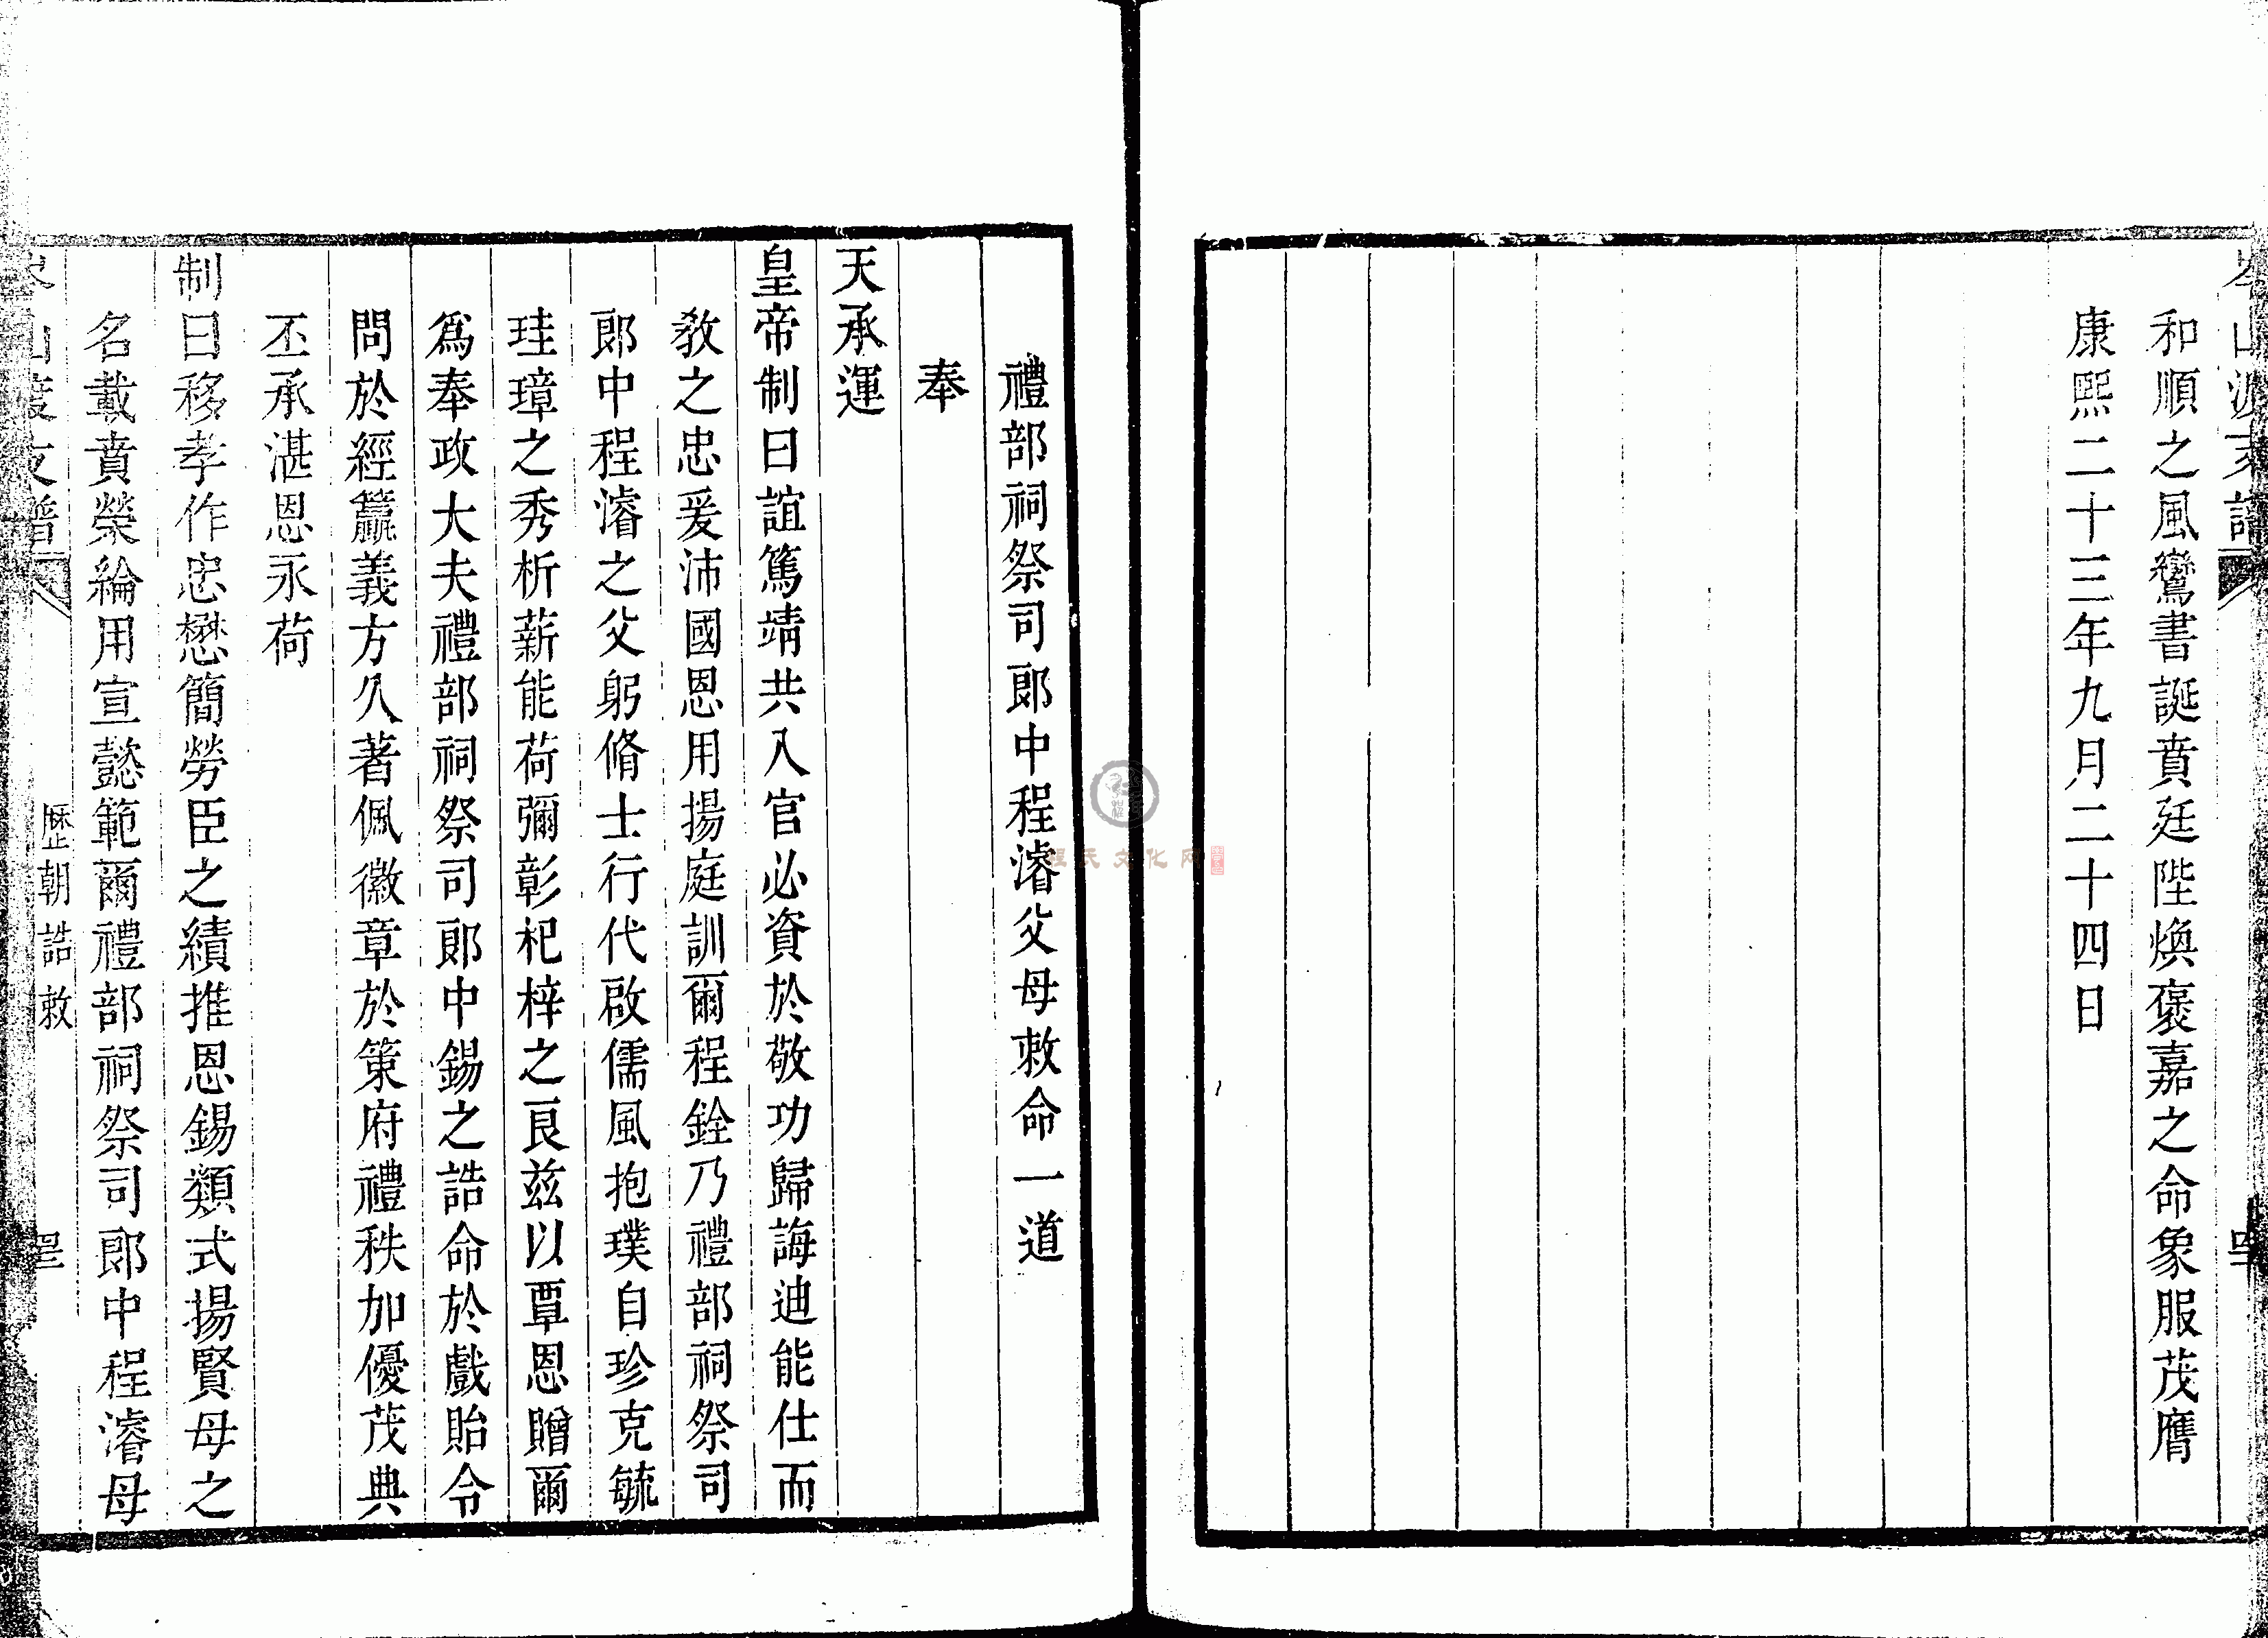 和順之風鸞書誕賁廷陛煥褒嘉之命象服茂膺
康熙二十三年九月二十四日
禮部祠祭司郎中程濬父母敕命一道
奉
天承運
皇帝制曰誼篤靖共入官必資於敬功歸誨迪能仕而
教之忠爰沛國恩用揚庭訓爾程銓乃禮部祠祭司
郎中程濬之父躬脩士行代啟儒風抱璞自珍克毓
珪璋之秀析薪能荷彌彰杞梓之良茲以覃恩贈爾
爲奉政大夫禮部祠祭司郎中錫之誥命於戲貽令
問於經籯義方久著佩徽章於策府禮秩加優茂典
丕承湛恩永荷
制曰移孝作忠懋簡勞臣之績推恩錫類式揚賢母之
名載賁榮綸用宣懿範爾禮部祠祭司郎中程濬母
歷朝誥敕
程氏文化网